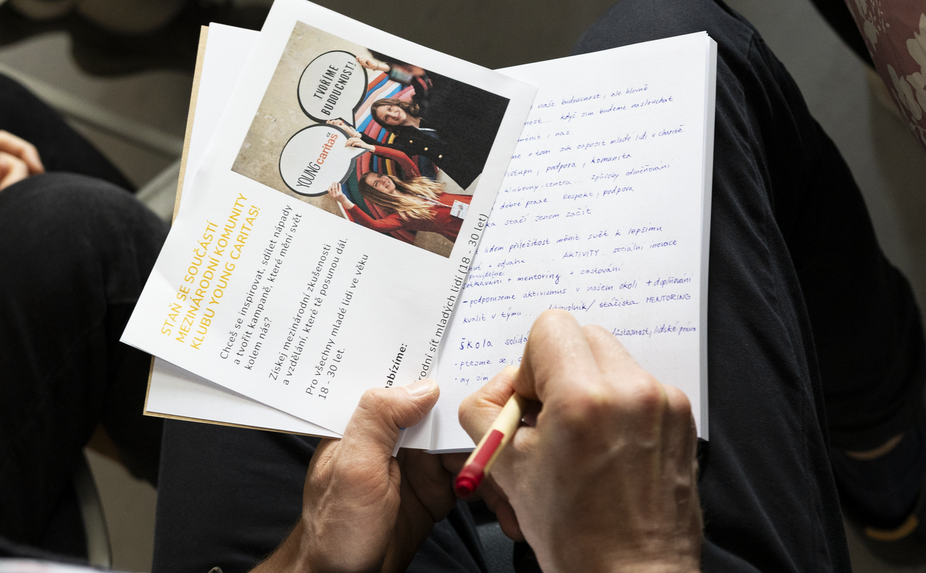 TVOŘÍME
BUDOUCNOST!
YOUNG caritas
STAŇ SE SOUČÁSTÍ
MEZINÁRODNÍ KOMUNITY
KLUBU YOUNG CARITAS!
Chceš se inspirovat, sdílet nápady
a tvořit kampaně, které mění svět
kolem nás?
Získej mezinárodní zkušenosti
a vzdělání, které tě posunou dál.
Pro všechny mladé lidi ve věku
18 - 30 let.
nabízíme:
rodní síť mladých lidí (18 - 30 let)
budoucnost, ale hlavně
když jim budeme naslouchat
nás
o tom jak zapojit mladé lidi v charitě
podpora, komunita
dobré praxe respekt, podpora
stačí jenom začít
lidem příležitost měnit svět k lepšímu
odvaha ... AKTIVITY .. sociální inovace
+ mentoring + cestování
- podporujeme aktivismus v našem okolí + doplňování
kvalit v týmu ... / stážista MENTORING
ŠKOLA důstojnost, lidská práva
- ptejme se,
- my jim